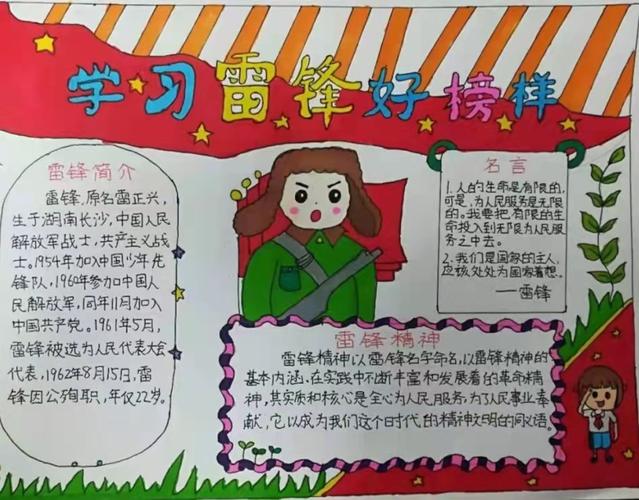 学习雷锋好榜样
雷锋简介
雷锋,原名雷正兴,
生于湖南长沙,中国人民
解放军战士,共产主义战
士。1954年加入中国少年先
锋队,1960年参加中国人
民解放军,同年11月加入
中国共产党。1961年5月,
雷锋被选为人民代表大会
代表,1962年8月15日,雷
锋因公殉职,年仅22岁。
名言
1.人的生命是有限的,
可是,为人民服务是无限
的。我要把有限的生
命投入到无限为人民服
务之中去。
2.我们是国家的主人,
应该处处为国家着想。
——雷锋
雷锋精神
雷锋精神以雷锋名字命名,以雷锋精神的
基本内涵,在实践中不断丰富和发展着的革命精
神,其实质和核心是全心为人民服务,为了人民事业奉
献,它以成为我们这个时代的精神文明的同义语。